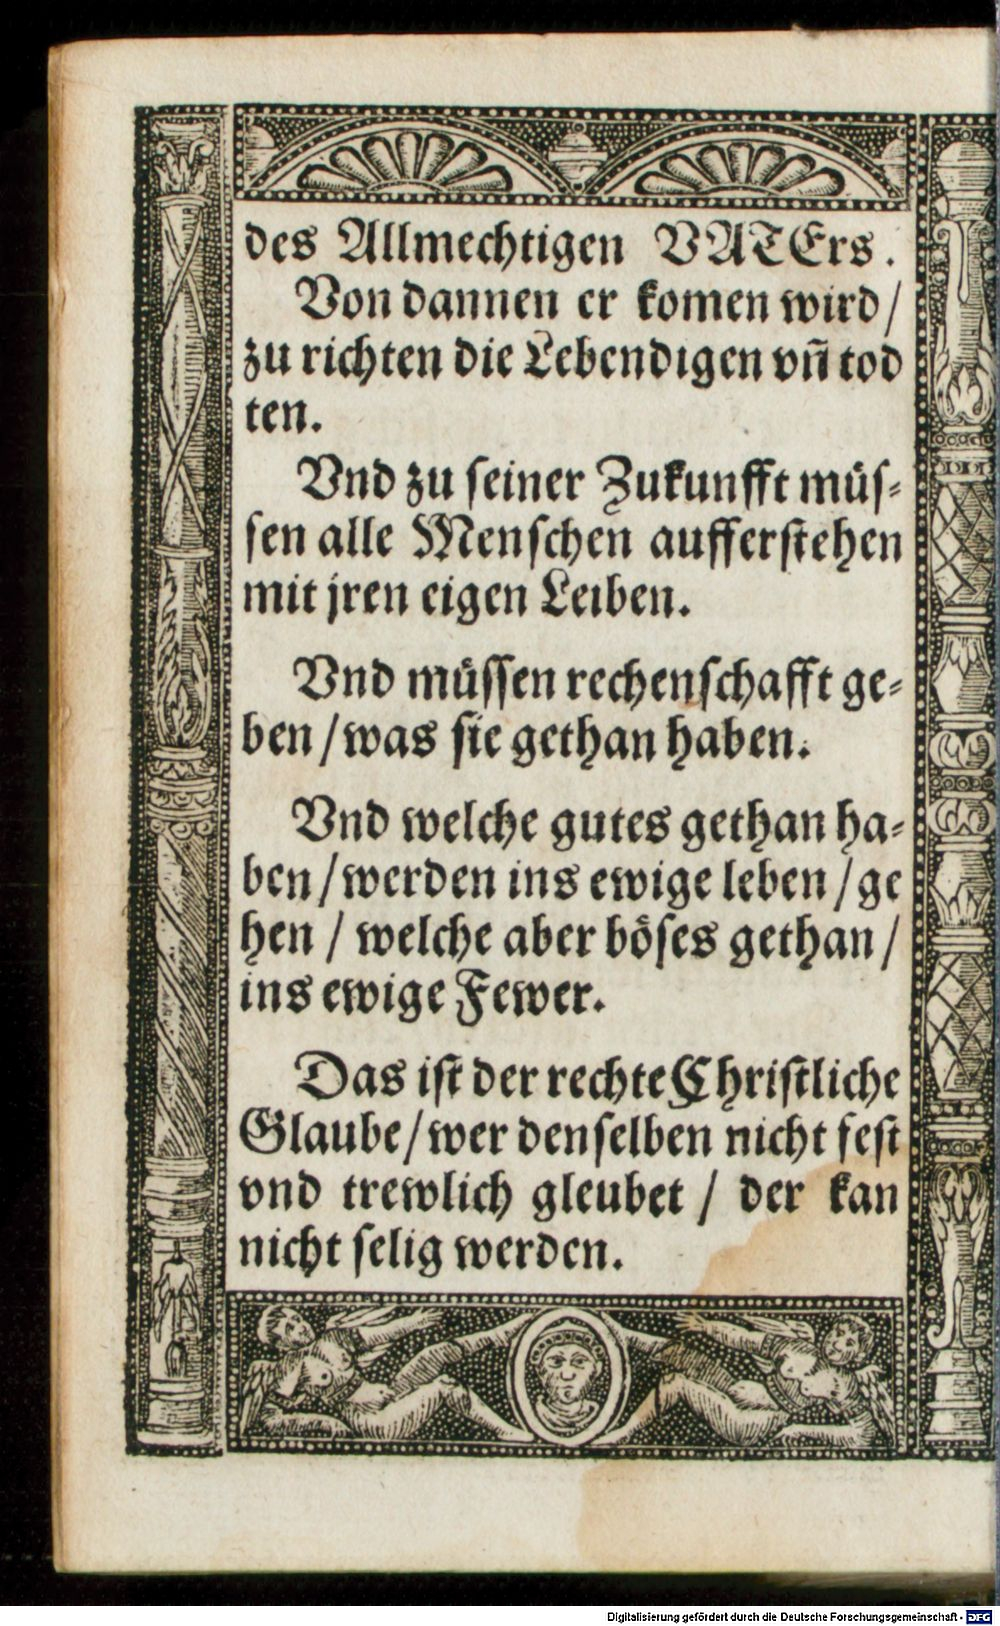 des Allmechtigen VATErs.
Von dannen er komen wird/
zu richten die Lebendigen vñ tod
ten.
Vnd zu seiner Zukunfft müs-
sen alle Menschen aufferstehen
mit jren eigen Leiben.
Vnd müssen rechenschafft ge-
ben/was sie gethan haben.
Vnd welche gutes gethan ha-
ben/werden ins ewige leben/ge
hen / welche aber böses gethan/
ins ewige Fewer.
Das ist der rechte Christliche
Glaube/wer denselben nicht fest
vnd trewlich gleubet / der kan
nicht selig werden.
Digitalisierung gefördert durch die Deutsche Forschungsgemeinschaft - DFG